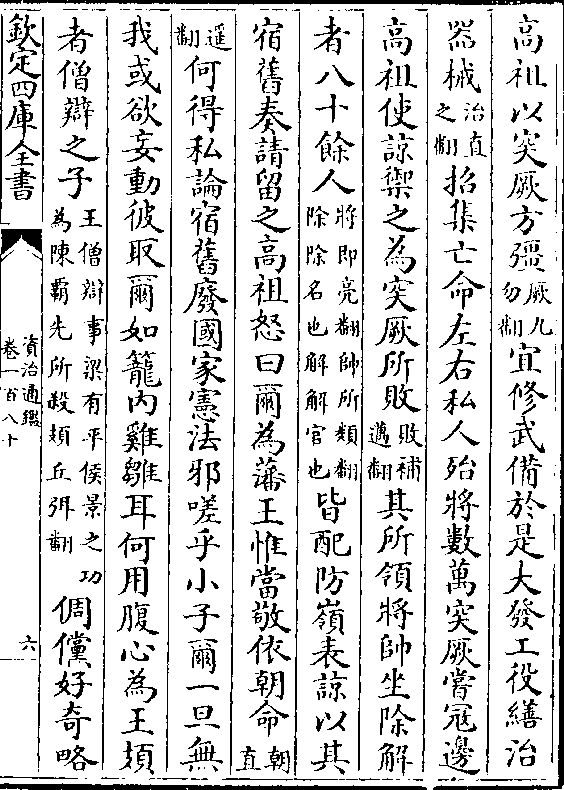 高祖以突厥方彊厥九勿翻宜修武備於是大發工役繕治
器械治直之翻招集亡命左右私人殆將數萬突厥嘗冦邊
高祖使諒禦之為突厥所敗敗補邁翻其所領將帥坐除解
者八十餘人將即亮翻帥所類翻除除名也解解官也皆配防嶺表諒以其
宿舊奏請留之高祖怒曰爾為藩王惟當敬依朝命朝直
遥翻何得私論宿舊廢國家憲法邪嗟乎小子爾一旦無
我或欲妄動彼取爾如籠内雞雛耳何用腹心為王頍
者僧辯之子王僧辯事梁有平侯景之功為陳霸先所殺頍丘弭翻倜儻好奇略
欽定四庫全書
資治通鑑
卷一百八十
六